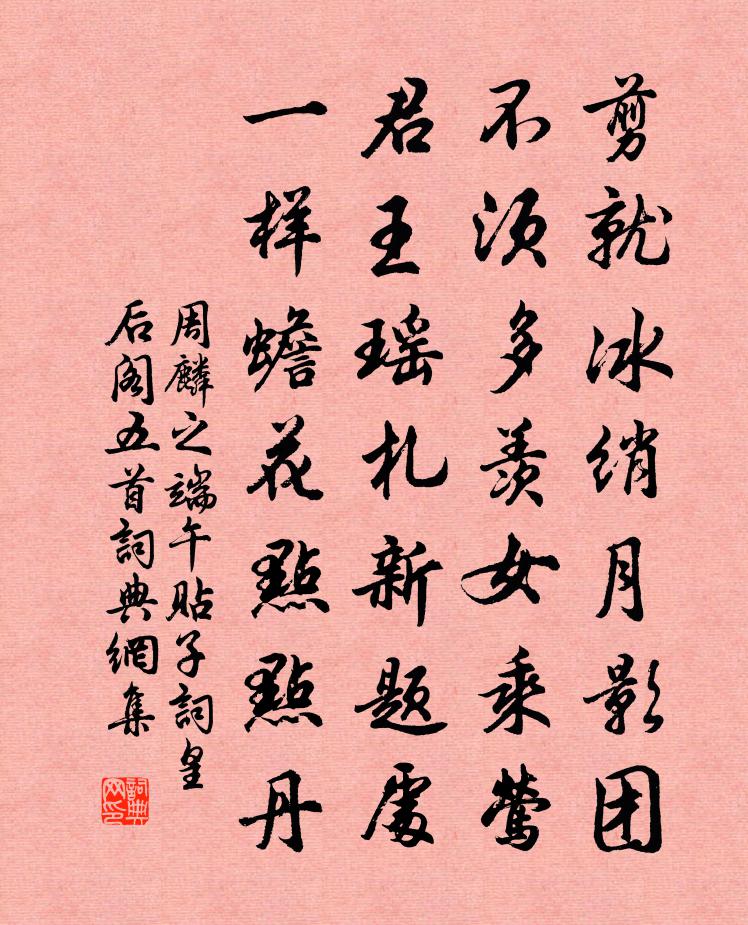 剪就冰绡月影团
不须多羡女乘莺
君王瑶札新题處
一样蟾花點點丹
周麟之端午贴子詞皇
后阁五首詞典網集
詞典网印